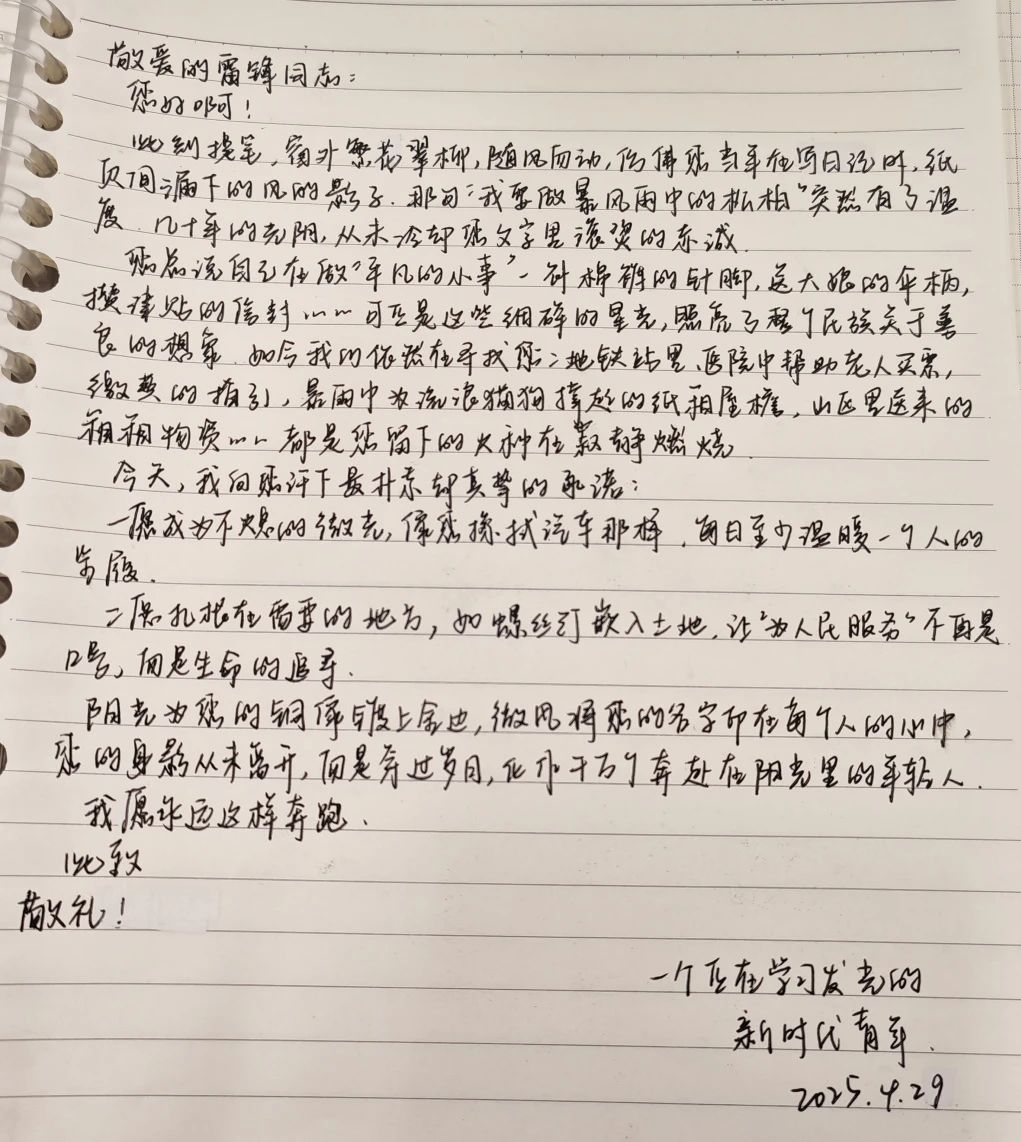 敬爱的雷锋同志：
您好啊！
此刻提笔，窗外繁花翠柳，随风而动，仿佛您当年在写日记时，纸
页间漏下的风的影子．那句：“我要做暴风雨中的松柏”突然有了温
度．几十年的光阴，从未冷却您文字里滚烫的赤诚．
您总说自己在做“平凡的小事”一针棉裤的针脚，送大娘的伞柄，
攒津贴的信封……可正是这些细碎的星光，照亮了整个民族关于善
良的想象．如今我们依然在寻找您：地铁站里、医院中帮助老人买票，
缴费的指引，暴雨中为流浪猫狗撑起的纸箱屋檐，山区里送来的
箱箱物资……都是您留下的火种在寂静燃烧．
今天，我向您许下最朴素却真挚的承诺：
一愿成为不熄的微光，像您擦拭汽车那样，每日至少温暖一个人的
步履．
二愿扎根在需要的地方，如螺丝钉嵌入土地，让“为人民服务”不再是
口号，而是生命的追寻．
阳光为您的铜像镀上金边，微风将您的名字印在每个人的心中，
您的身影从未离开，而是穿过岁月，化作千万个奔赴在阳光里的年轻人．
我愿永远这样奔跑．
此致
敬礼！
一个正在学习发光的
新时代青年．
2025.4.29